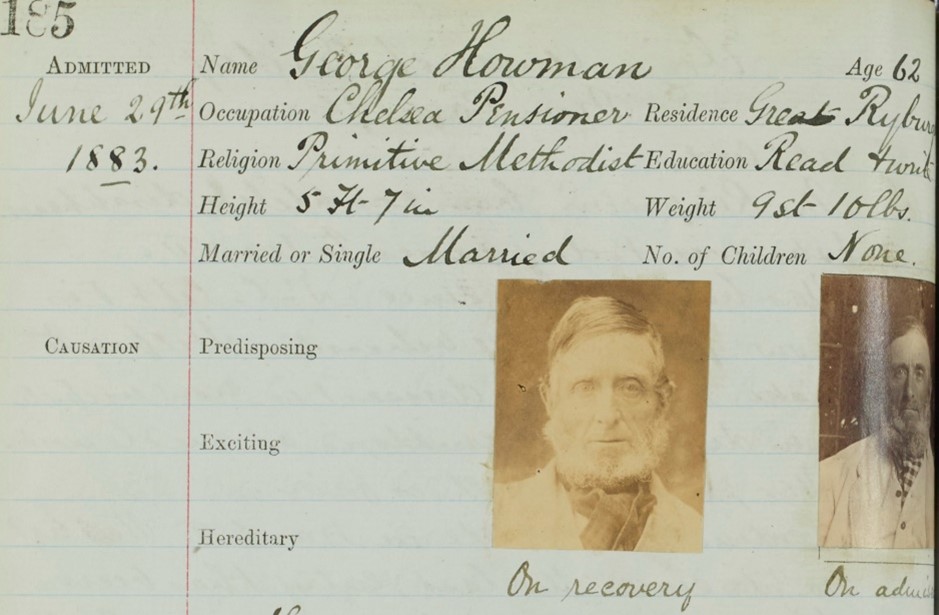 185
ADMITTED Name George Howman Age 62
June 29th Occupation Chelsea Pensioner Residence Great Rybur
1883. Religion Primitive Methodist Education Read + writ
Height 5 Ft 7 in Weight 9 st 10 lbs.
Married or Single Married No. of Children None.
CAUSATION Predisposing
Exciting
Hereditary
On recovery On admis